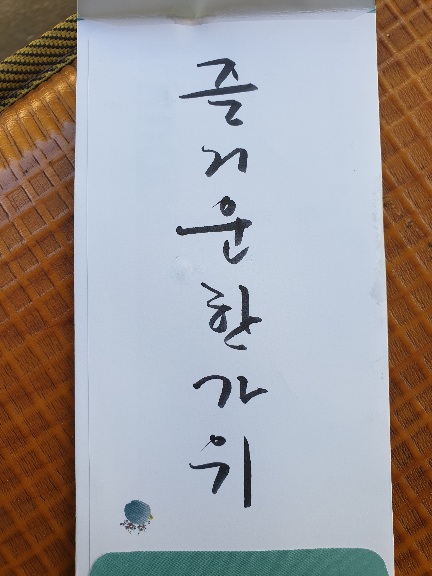 즐거운한가위